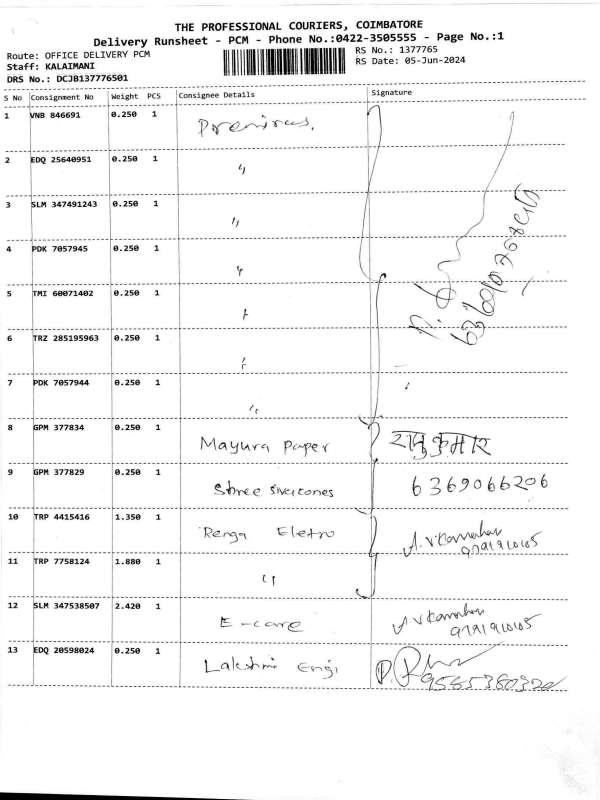 THE PROFESSIONAL COURIERS, COIMBATORE
Delivery Runsheet - PCM - Phone No.:0422-3505555 - Page No.:1
Route: OFFICE DELIVERY PCM
RS No.: 1377765
Staff: KALAIMANI
RS Date: 05-Jun-2024
DRS No.: DCJB137776501
S No Consignment No Weight PCS Consignee Details Signature
1 VNB 846691 0.250 1
2 EDQ 25640951 0.250 1 "
3 SLM 347491243 0.250 1 "
4 PDK 7057945 0.250 1 "
5 TMI 60071402 0.250 1 "
6 TRZ 285195963 0.250 1 "
7 PDK 7057944 0.250 1 "
8 GPM 377834 0.250 1 Mayura Paper
9 GPM 377829 0.250 1 Shree 6369066206
10 TRP 4415416 1.350 1 Renga Eletro
11 TRP 7758124 1.880 1 "
12 SLM 347538507 2.420 1 E-care
13 EDQ 20598024 0.250 1 Lakshmi Engi